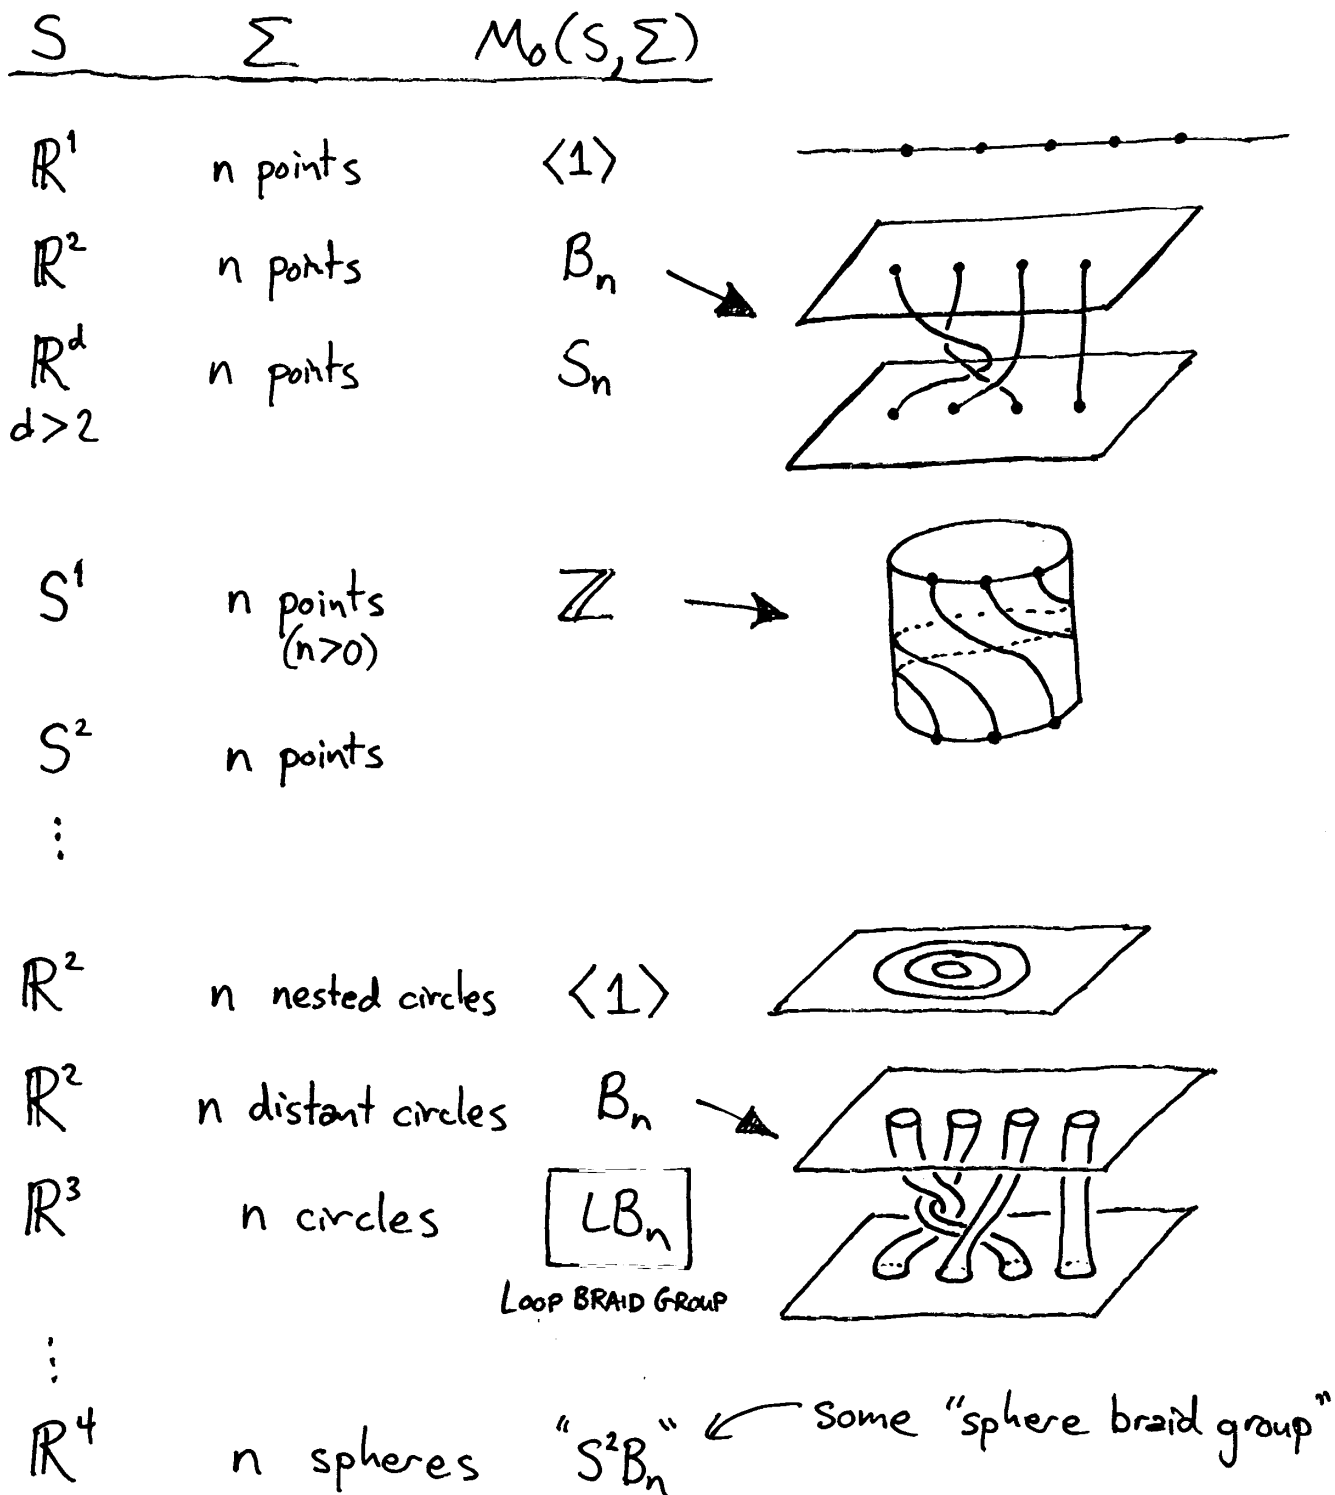 S Σ M₀(S,Σ)
ℝ¹ n points ⟨1⟩
ℝ² n points Bₙ
ℝᵈ n points Sₙ
d>2
S¹ n points ℤ
(n>0)
S² n points
⋮
ℝ² n nested circles ⟨1⟩
ℝ² n distant circles Bₙ
ℝ³ n circles LBₙ
LOOP BRAID GROUP
⋮
ℝ⁴ n spheres "S²Bₙ" some "sphere braid group"